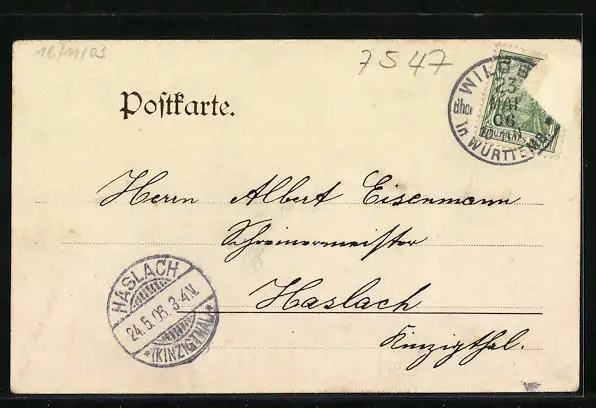 16/11/03
7547
Postkarte.
WILDB
23
MAI
06
in WÜRTTEMB.
Herrn Albert Eisenmann
Schreinermeister
Haslach
Kinzigthal.
HASLACH
24.5.06. 3-4N.
*(KINZIGTHAL)*